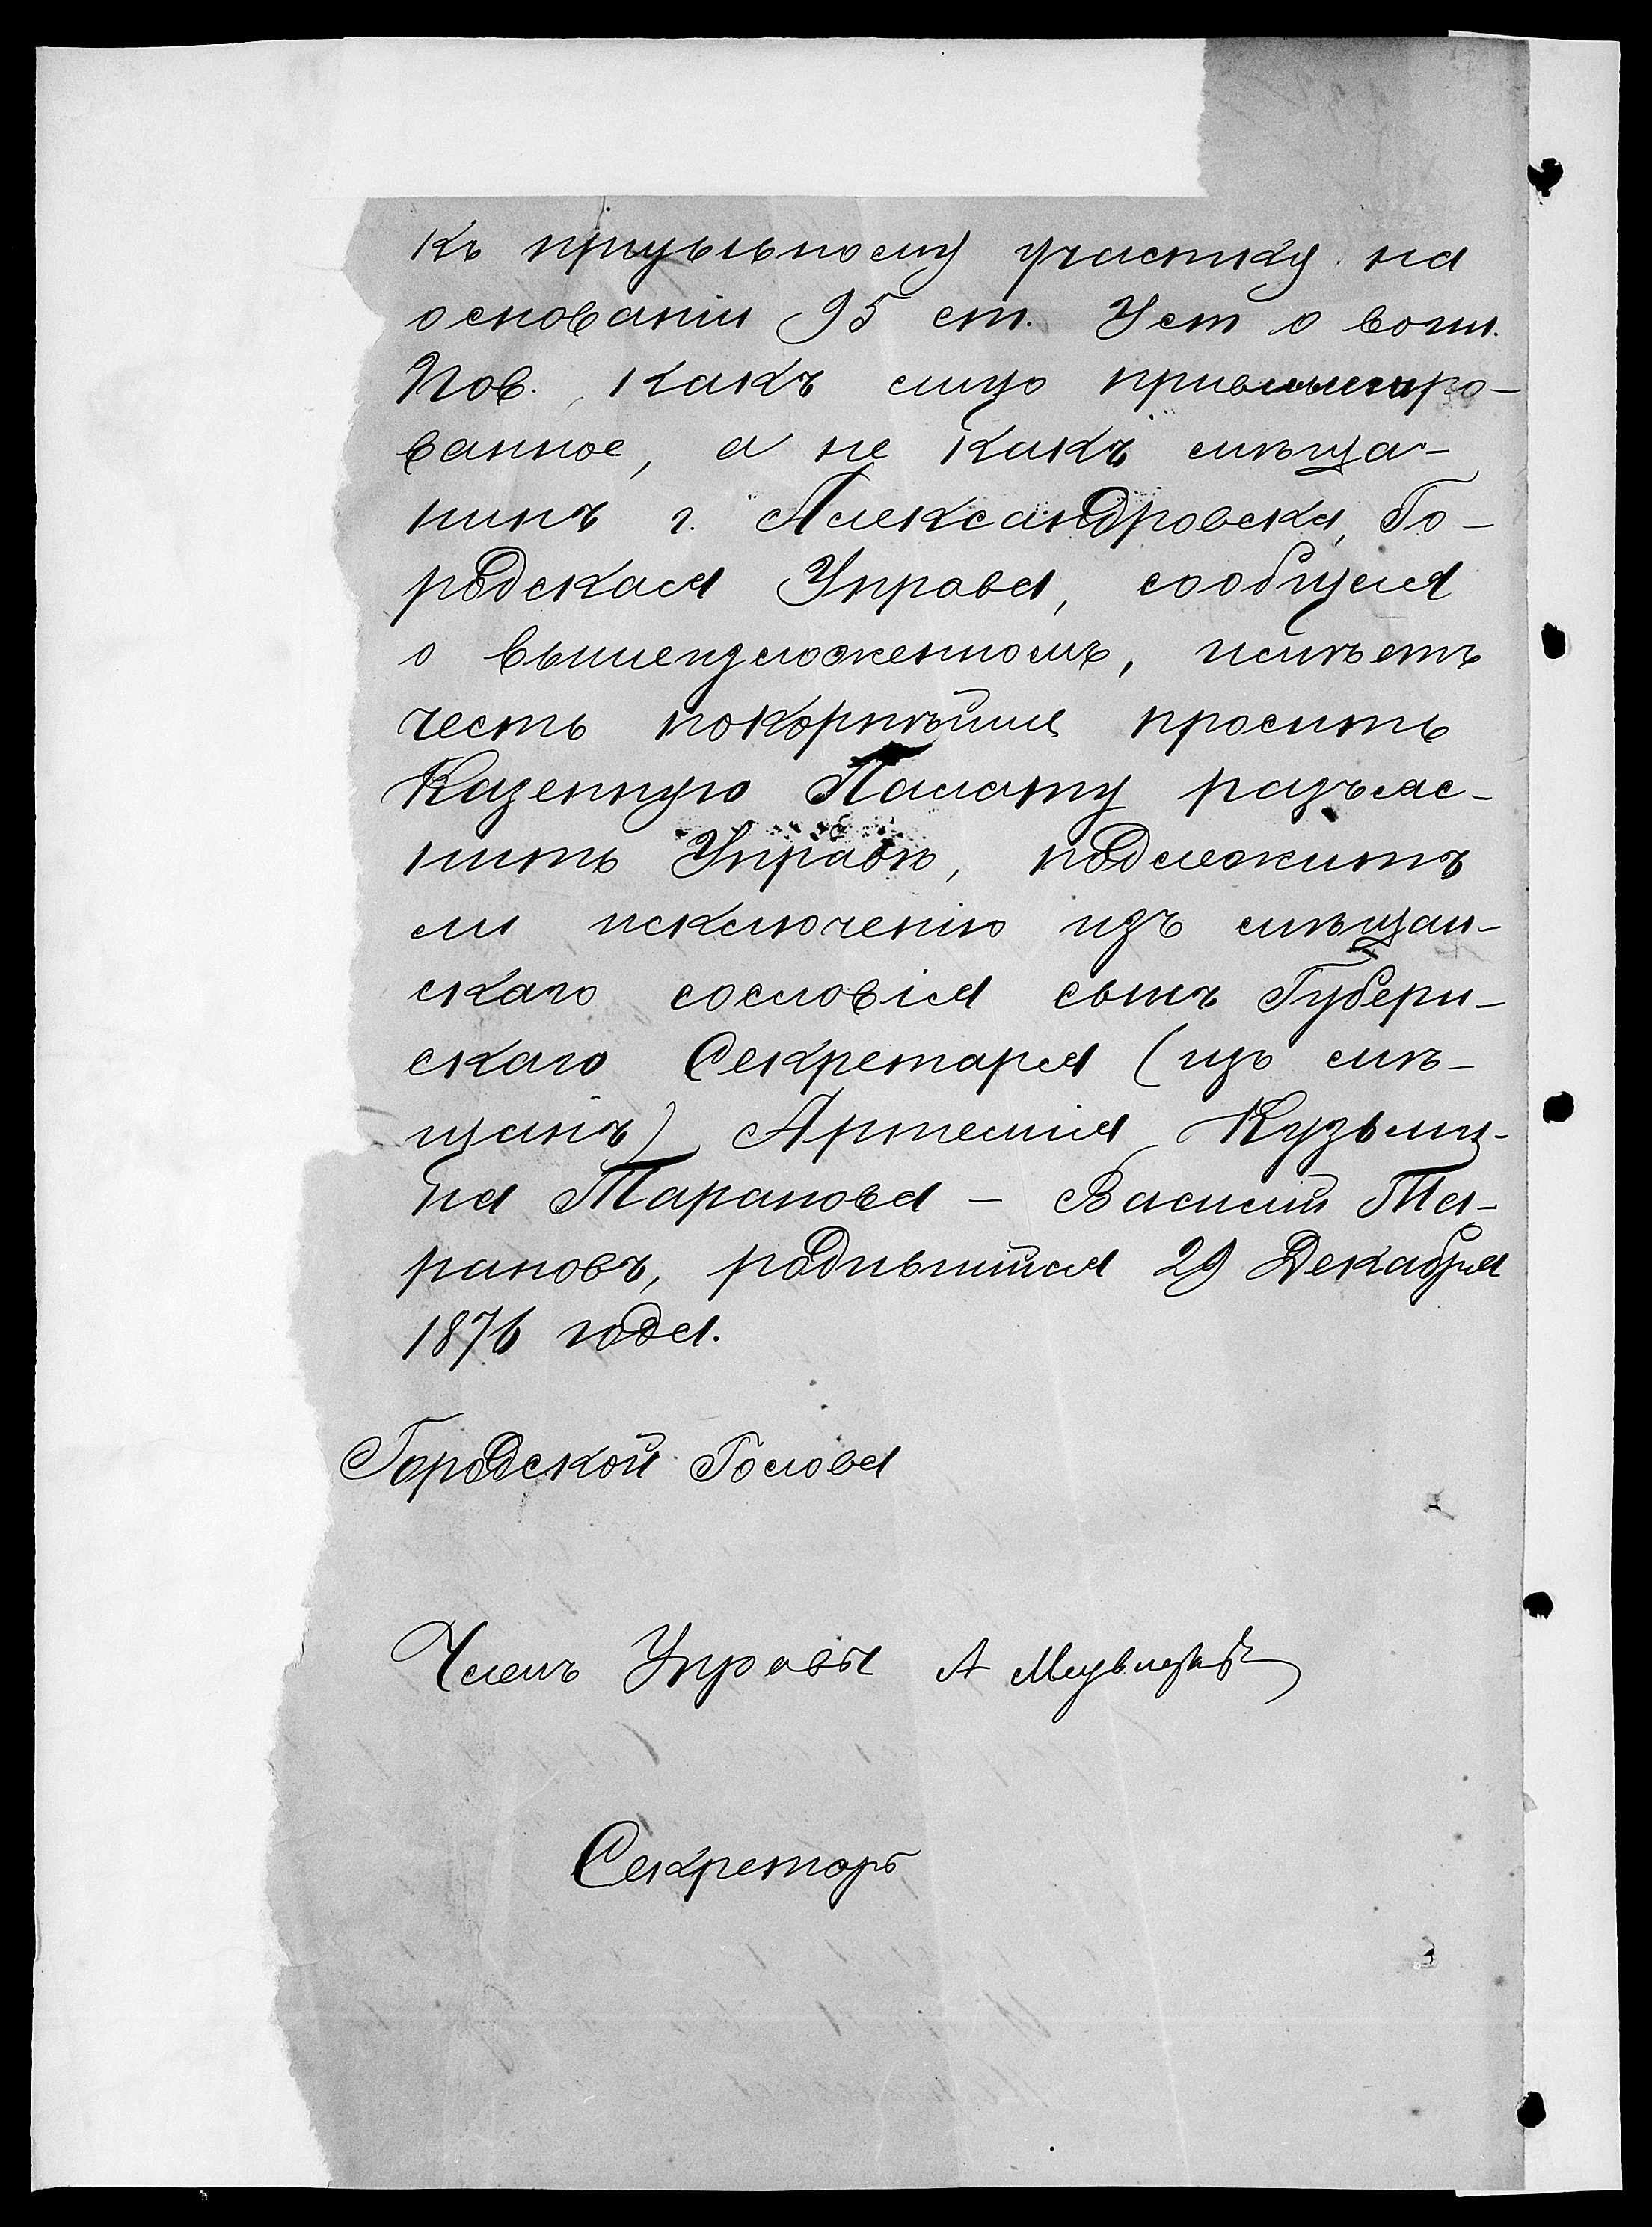 къ призывному участку на
основаніи 95 ст. Уст о воин.
Пов. какъ лицо привилегиро-
ванное, а не какъ мѣща-
нинъ г. Александровска, Го-
родская Управа, сообщая
о вышеизложенномъ, имѣетъ
честь покорнѣйше просить
Казенную Палату разъяс-
нить Управѣ, подлежитъ
ли исключенію изъ мѣщан-
скаго сословія сынъ Губерн-
скаго Секретаря (изъ мѣ-
щанъ) Артемія Кузьми-
на Таранова - Василій Та-
рановъ, родившійся 29 Декабря
1876 года.
Городской Голова
Членъ Управы А
Секретарь